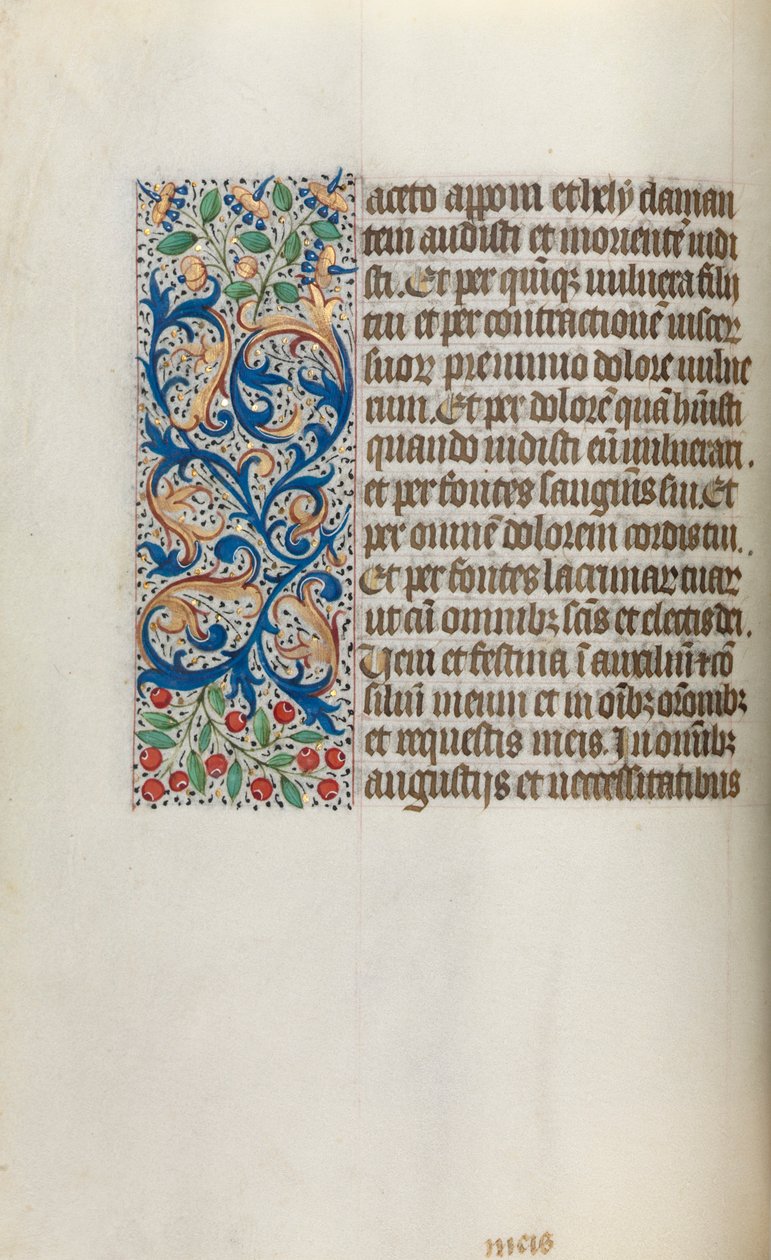 aceto apponi et hely claman
tem audisti et morientē uidi
sti. Et per quīqꝫ uulnera filij
tui et per contractionē uiscerꝝ
suoꝝ pre nimio dolore uulne
rum. Et per dolorē quā hūisti
quando uidisti eū uulnerari.
et per fontes sanguīs sui. Et
per omnē dolorem cordis tui.
Et per fontes lacrimaꝝ tuaꝝ
ut cū omnibꝫ scīs et electis dei.
Veni et festina ī auxiliū ⁊ cō
silium meum et in oībꝫ orōnibꝫ
et requestis meis. In omībꝫ
angustijs et necessitatibus
meis